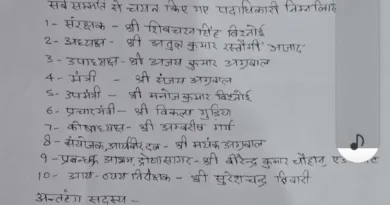 सर्व सम्मति से चयन किए गए पदाधिकारी निम्नलिखित
1- संरक्षक - श्री शिवचरन सिंह विश्नोई
2- अध्यक्ष - श्री अतुल कुमार रस्तोगी 'आजाद'
3- उपाध्यक्ष - श्री अजय कुमार अग्रवाल
4- मंत्री - श्री संजय अग्रवाल
5- उपमंत्री - श्री मनोज कुमार विश्नोई
6- प्रचारमंत्री - श्री विकल्प गुड़िया
7- कोषाध्यक्ष - श्री अम्बरीष गर्ग
8- संयोजक, आर्यवीर दल - श्री मयंक अग्रवाल
9- प्रबन्धक, आश्रम, द्रोणासागर - श्री वीरेन्द्र कुमार चौहान,
10- आय-व्यय निरीक्षक - श्री सुरेशचन्द्र तिवारी
अन्तरंग सदस्य -